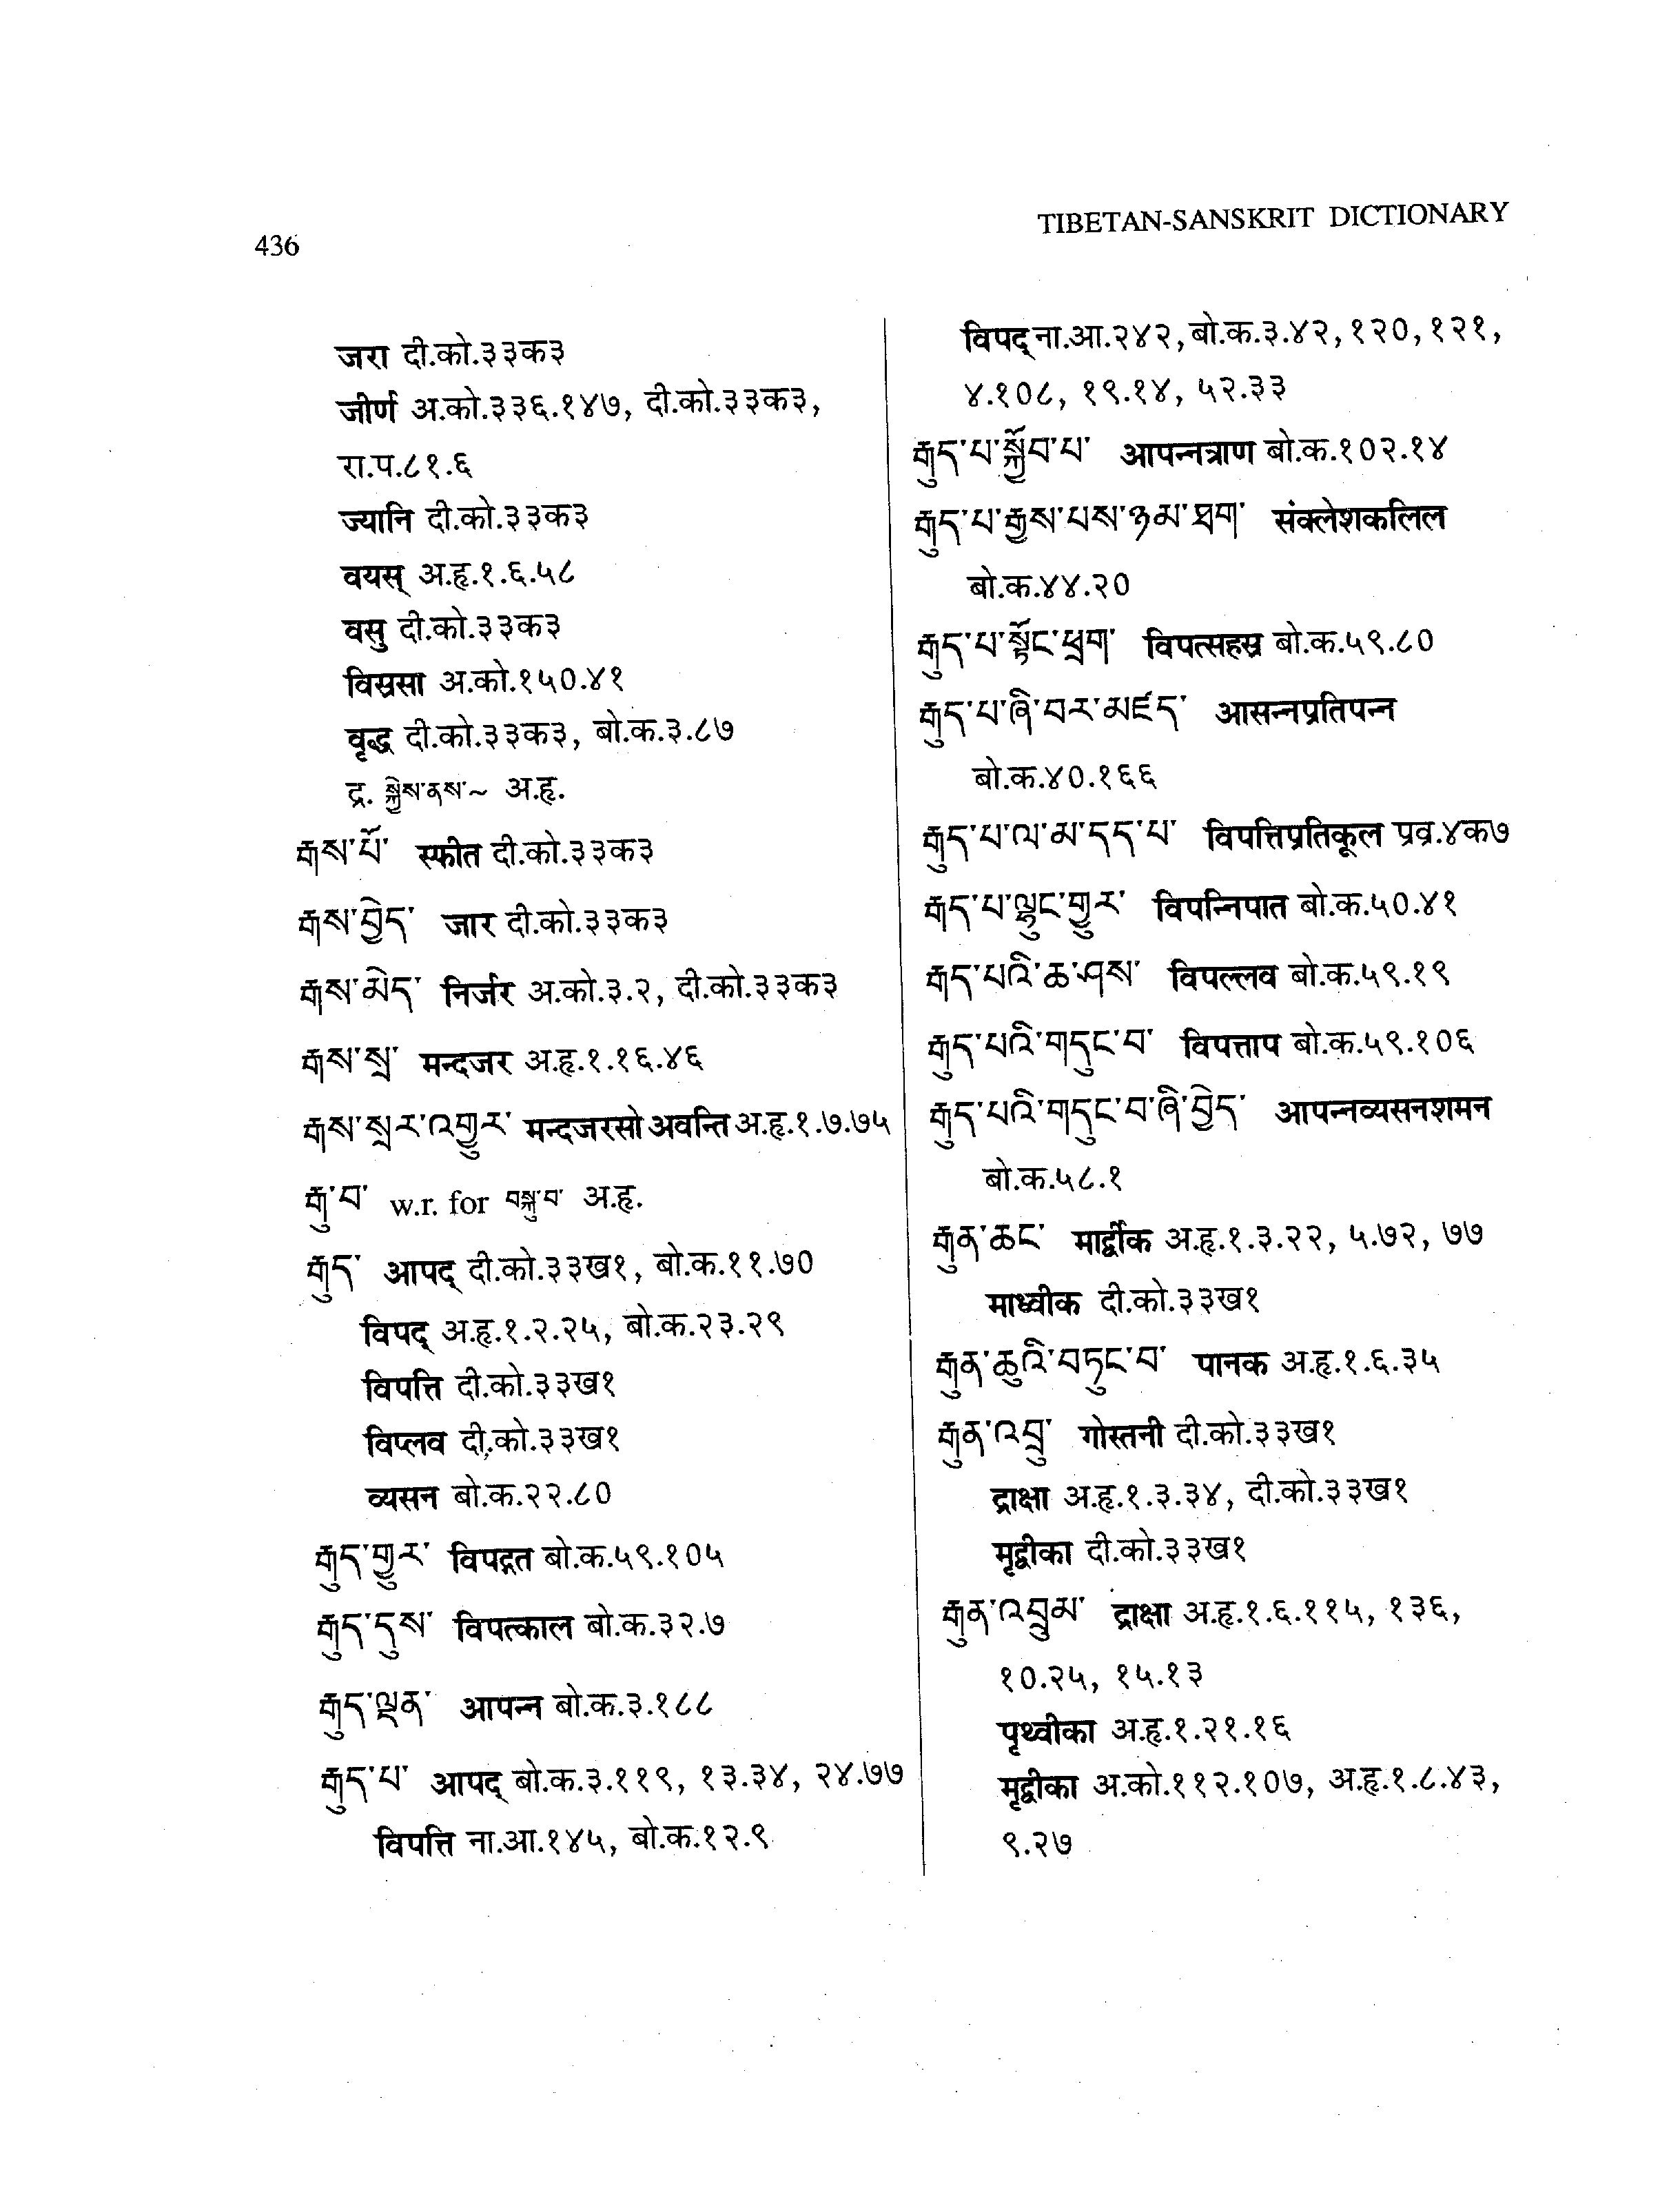 436
TIBETAN-SANSKRIT DICTIONARY
जरा दी.को.३३क३
जीर्ण अ.को.३३६.१४७, दी.को.३३क३,
रा.प.८१.६
ज्यानि दी.को.३३क३
वयस् अ.हृ.१.६.५८
वसु दी.को.३३क३
विस्रसा अ.को.१५०.४१
वृद्ध दी.को.३३क३, बो.क.३.८७
द्र. སྐྱེས་ནས་~ अ.हृ.
རྒས་པོ་ स्फीत दी.को.३३क३
རྒས་བྱེད་ जार दी.को.३३क३
རྒས་མེད་ निर्जर अ.को.३.२, दी.को.३३क३
རྒས་སྲ་ मन्दजर अ.हृ.१.१६.४६
རྒས་སྲར་འགྱུར་ मन्दजरसो अवन्ति अ.हृ.१.७.७५
རྒུ་བ་ w.r. for བསྐུ་བ་ अ.हृ.
རྒུད་ आपद् दी.को.३३ख१, बो.क.११.७०
विपद् अ.हृ.१.२.२५, बो.क.२३.२९
विपत्ति दी.को.३३ख१
विप्लव दी.को.३३ख१
व्यसन बो.क.२२.८०
རྒུད་གྱུར་ विपद्गत बो.क.५९.१०५
རྒུད་དུས་ विपत्काल बो.क.३२.७
རྒུད་ལྡན་ आपन्न बो.क.३.१८८
རྒུད་པ་ आपद् बो.क.३.११९, १३.३४, २४.७७
विपत्ति ना.आ.१४५, बो.क.१२.९
विपद् ना.आ.२४२, बो.क.३.४२, १२०, १२१,
४.१०८, १९.१४, ५२.३३
རྒུད་པ་སྐྱོབ་པ་ आपन्नत्राण बो.क.१०२.१४
རྒུད་པ་རྒྱས་པས་ཉམ་ཐག་ संक्लेशकलिल
बो.क.४४.२०
རྒུད་པ་སྟོང་ཕྲག་ विपत्सहस्र बो.क.५९.८०
རྒུད་པ་ཞི་བར་མཛད་ आसन्नप्रतिपन्न
बो.क.४०.१६६
རྒུད་པ་ལ་མ་དད་པ་ विपत्तिप्रतिकूल प्रव्र.४क७
རྒད་པ་ལྟུང་གྱུར་ विपन्निपात बो.क.५०.४१
རྒད་པའི་ཆ་ཤས་ विपल्लव बो.क.५९.१९
རྒུད་པའི་གདུང་བ་ विपत्ताप बो.क.५९.१०६
རྒུད་པའི་གདུང་བ་ཞི་བྱེད་ आपन्नव्यसनशमन
बो.क.५८.१
རྒུན་ཆང་ मार्द्वीक अ.हृ.१.३.२२, ५.७२, ७७
माध्वीक दी.को.३३ख१
རྒུན་ཆུའི་བཏུང་བ་ पानक अ.हृ.१.६.३५
རྒུན་འབྲུ་ गोस्तनी दी.को.३३ख१
द्राक्षा अ.हृ.१.३.३४, दी.को.३३ख१
मृद्वीका दी.को.३३ख१
རྒུན་འབྲུམ་ द्राक्षा अ.हृ.१.६.११५, १३६,
१०.२५, १५.१३
पृथ्वीका अ.हृ.१.२१.१६
मृद्वीका अ.को.११२.१०७, अ.हृ.१.८.४३,
९.२७